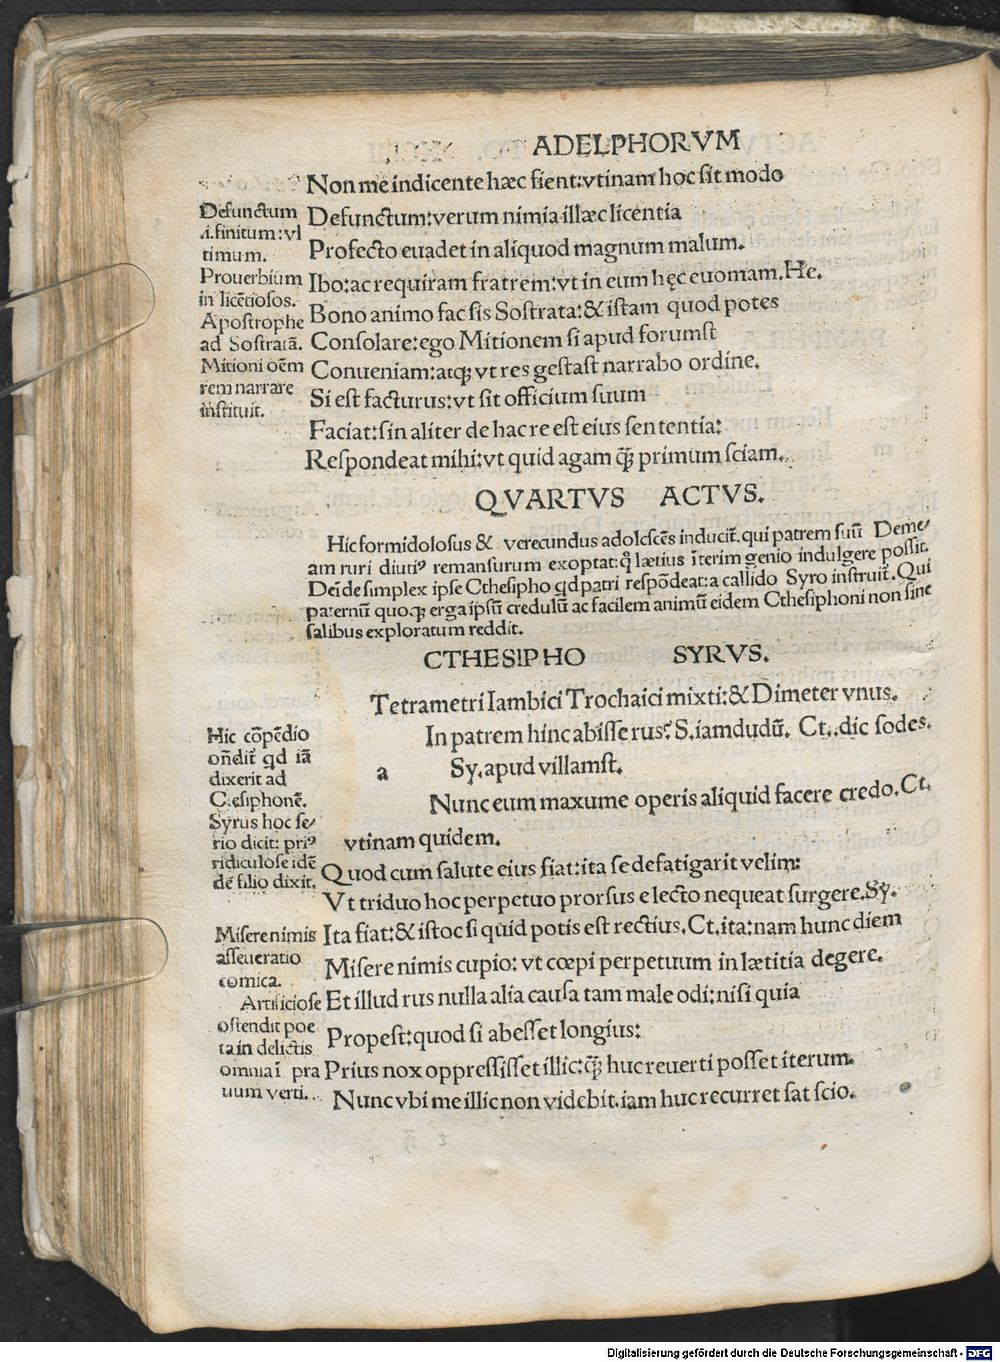 ADELPHORVM
Non me indicente hæc fient:vtinam hoc sit modo
Defunctum:verum nimia illæc licentia
Profecto euadet in aliquod magnum malum.
Ibo:ac requiram fratrem:vt in eum hęc euomam.He.
Bono animo fac sis Sostrata:& istam quod potes
Consolare:ego Mitionem si apud forumst
Conueniam:atqꝫ vt res gestast narrabo ordine.
Si est facturus:vt sit officium suum
Faciat:sin aliter de hac re est eius sententia:
Respondeat mihi:vt quid agam q̃ꝫ primum sciam.
Defunctum
.i.finitum:vl
timum.
Prouerbium
in licẽtiosos.
Apostrophe
ad Sostratã.
Mitioni oẽm
rem narrare
instituit.
QVARTVS ACTVS.
Hic formidolosus & verecundus adolescẽs inducit̃.qui patrem suũ Deme⸗
am ruri diutiꝰ remansurum exoptat:q̃ lætius ĩterim genio indulgere possit.
Deĩde simplex ipse Cthesipho qd patri respõdeat:a callido Syro instruit̃.Qui
paternũ quoqꝫ erga ipsũ credulũ ac facilem animũ eidem Cthesiphoni non sine
salibus exploratum reddit.
CTHESIPHO SYRVS.
Tetrametri Iambici Trochaici mixti:& Dimeter vnus.
a
In patrem hinc abisse rus? S.iamdudũ. Ct..dic sodes.
Sy.apud villamst.
Nunc eum maxume operis aliquid facere credo.Ct.
vtinam quidem.
Quod cum salute eius fiat:ita se defatigarit velim:
Vt triduo hoc perpetuo prorsus e lecto nequeat surgere.Sy.
Ita fiat:& istoc si quid potis est rectius.Ct.ita:nam hunc diem
Misere nimis cupio:vt cœpi perpetuum in lætitia degere.
Et illud rus nulla alia causa tam male odi:nisi quia
Propest:quod si abesset longius:
Prius nox oppressisset illic:q̃ꝫ huc reuerti posset iterum.
Nunc vbi me illic non videbit.iam huc recurret sat scio.
Hic cõpẽdio
oñdit̃ qd iã
dixerit ad
Ctesiphonẽ.
Syrus hoc se⸗
rio dicit: priꝰ
ridiculose idẽ
dẽ filio dixit.
Misere nimis
asseueratio
comica.
Artificiose
ostendit poe
ta in delictis
omnia ĩ pra
uum verti.